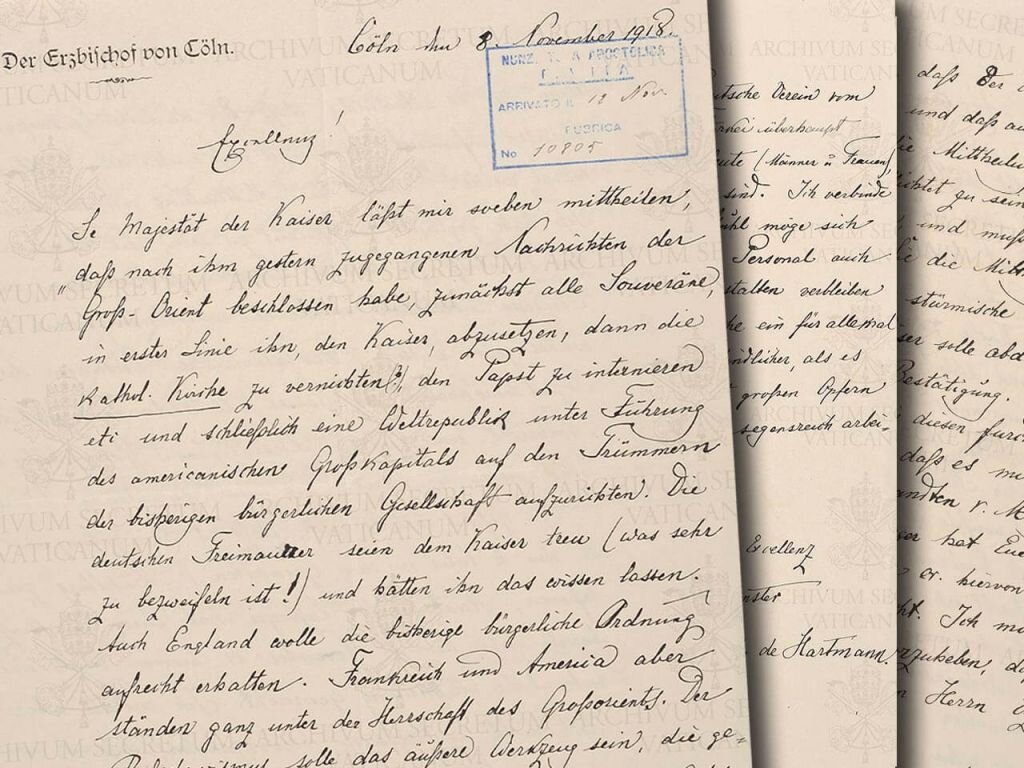 Der Erzbischof von Cöln.
Cöln den 8. November 1918.
NUNZ
ARRIVATO IL 12 Nov.
RUBRICA
No 10805
Excellenz!
Se Majestät der Kaiser läßt mir soeben mittheilen,
"daß nach ihm gestern zugegangenen Nachrichten der
Groß-Orient beschlossen habe, zunächst alle Souveräne,
in erster Linie ihn, den Kaiser, abzusetzen, dann die
kathol. Kirche zu vernichten(?), den Papst zu internieren
etc und schließlich eine Weltrepublik unter Führung
des americanischen Großkapitals auf den Trümmern
der bisherigen bürgerlichen Gesellschaft aufzurichten. Die
deutschen Freimaurer seien dem Kaiser treu (was sehr
zu bezweifeln ist!) und hätten ihn das wissen lassen.
Auch England wolle die bisherige bürgerliche Ordnung
aufrecht erhalten. Frankreich und America aber
ständen ganz unter der Herrschaft des Großorients. Der
Bolschewismus solle das äußere Werkzeug sein, die ge=
utsche Verein vom
überhaupt
(Männer u Frauen)
sind. Ich verbinde
möge sich
Personal auch
stalten verbleiben
ein für allemal
ndlicher, als es
großen Opfern
segensreich arbei-
Excellenz
de Hartmann.
daß der
und daß
Mittheilu
ichtet zu sein
und muß
die Mit
stürmische
ser solle abd
Bestätigung.
diesen furc
daß es m
andten v. M
ser hat Eue
er. hiervon
Ich m
rzuheben, d
Herrn
ARCHIVUM SECRETUM
VATICANUM